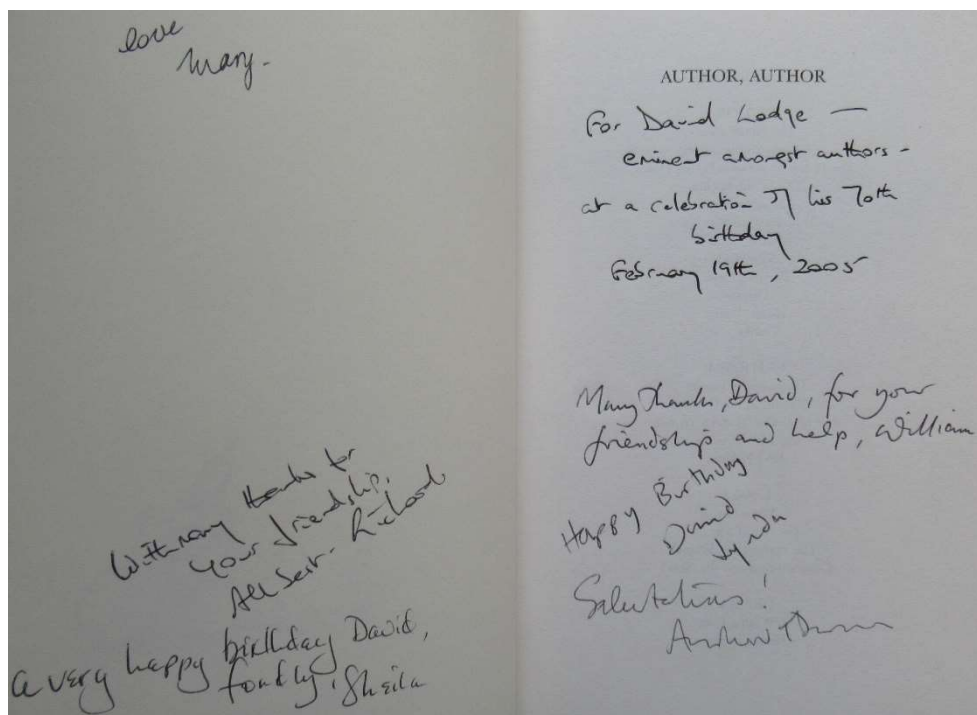 love
Mary.
With many thanks for
your friendship,
All best - Richard
A very happy birthday David,
fondly, Sheila
AUTHOR, AUTHOR
For David Lodge —
eminent amongst authors -
at a celebration of his 70th
birthday
February 19th, 2005
Many Thanks, David, for your
friendship and help, William
Happy Birthday
David
Lynda
Salutations!